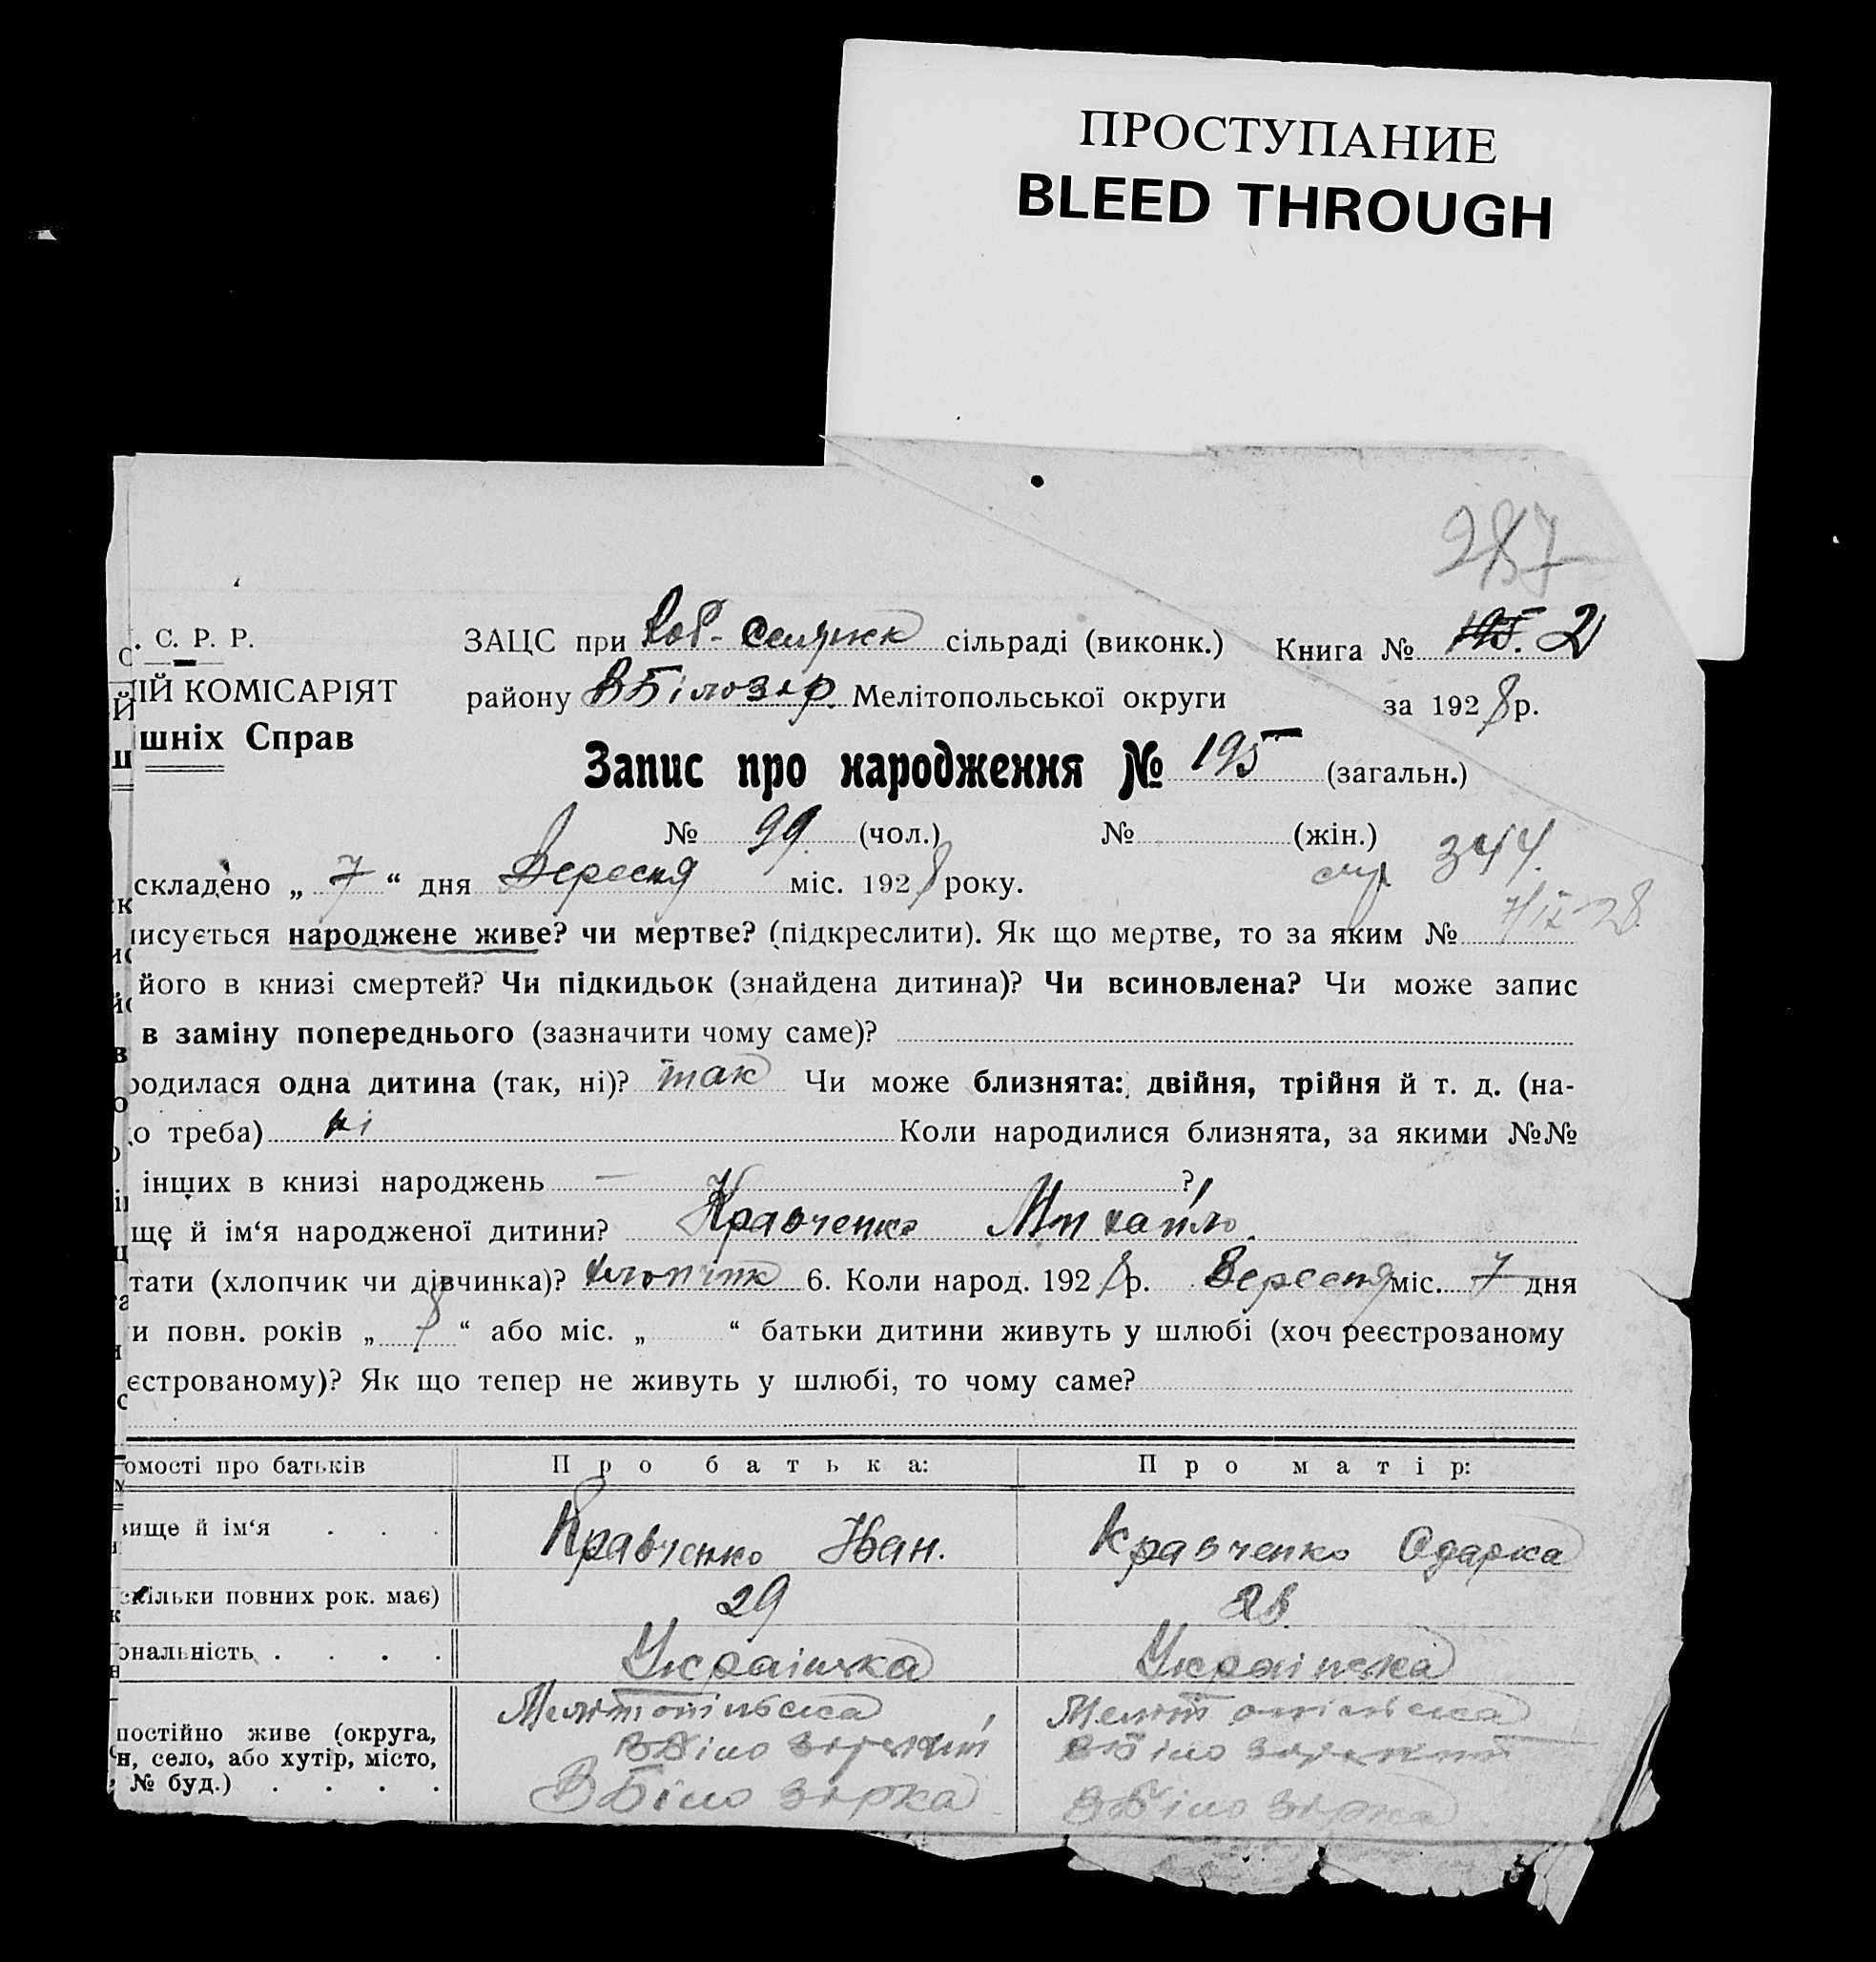 ПРОСТУПАНИЕ
BLEED THROUGH
287
. С. Р. Р.
ЗАЦС при сільраді (виконк.) Книга № 195. 2
ІЙ КОМІСАРІЯТ
району ВБілозер. Мелітопольської округи за 1928 р.
шніх Справ
Запис про народження № 195 (загальн.)
№ 99. (чол.) № (жін.)
344.
складено „ 7 “ дня Вересня міс. 1928 року.
7/IX-28
исується народжене живе? чи мертве? (підкреслити). Як що мертве, то за яким №
його в книзі смертей? Чи підкидьок (знайдена дитина)? Чи всиновлена? Чи може запис
в заміну попереднього (зазначити чому саме)?
родилася одна дитина (так, ні)? так Чи може близнята: двійня, трійня й т. д. (на-
о треба) ні Коли народилися близнята, за якими №№
інших в книзі народжень — ?
ще й ім‘я народженої дитини? Кравченко Михайло.
тати (хлопчик чи дівчинка)? хлопчик 6. Коли народ. 1928 р. Вересня міс. 7 дня
и повн. років „ 8 “ або міс. „ “ батьки дитини живуть у шлюбі (хоч реєстрованому
єстрованому)? Як що тепер не живуть у шлюбі, то чому саме?
омості про батьків Про батька: Про матір:
вище й ім‘я . . . Кравченко Іван. Кравченко Одарка
скільки повних рок. має) 29 28.
ональність . . . . Українська Українська
Мелітопільська Мелітопільська
постійно живе (округа, ВБілозерский ВБілозерский
н, село, або хутір, місто,
№ буд.) . . . . ВБілозірка ВБілозірка